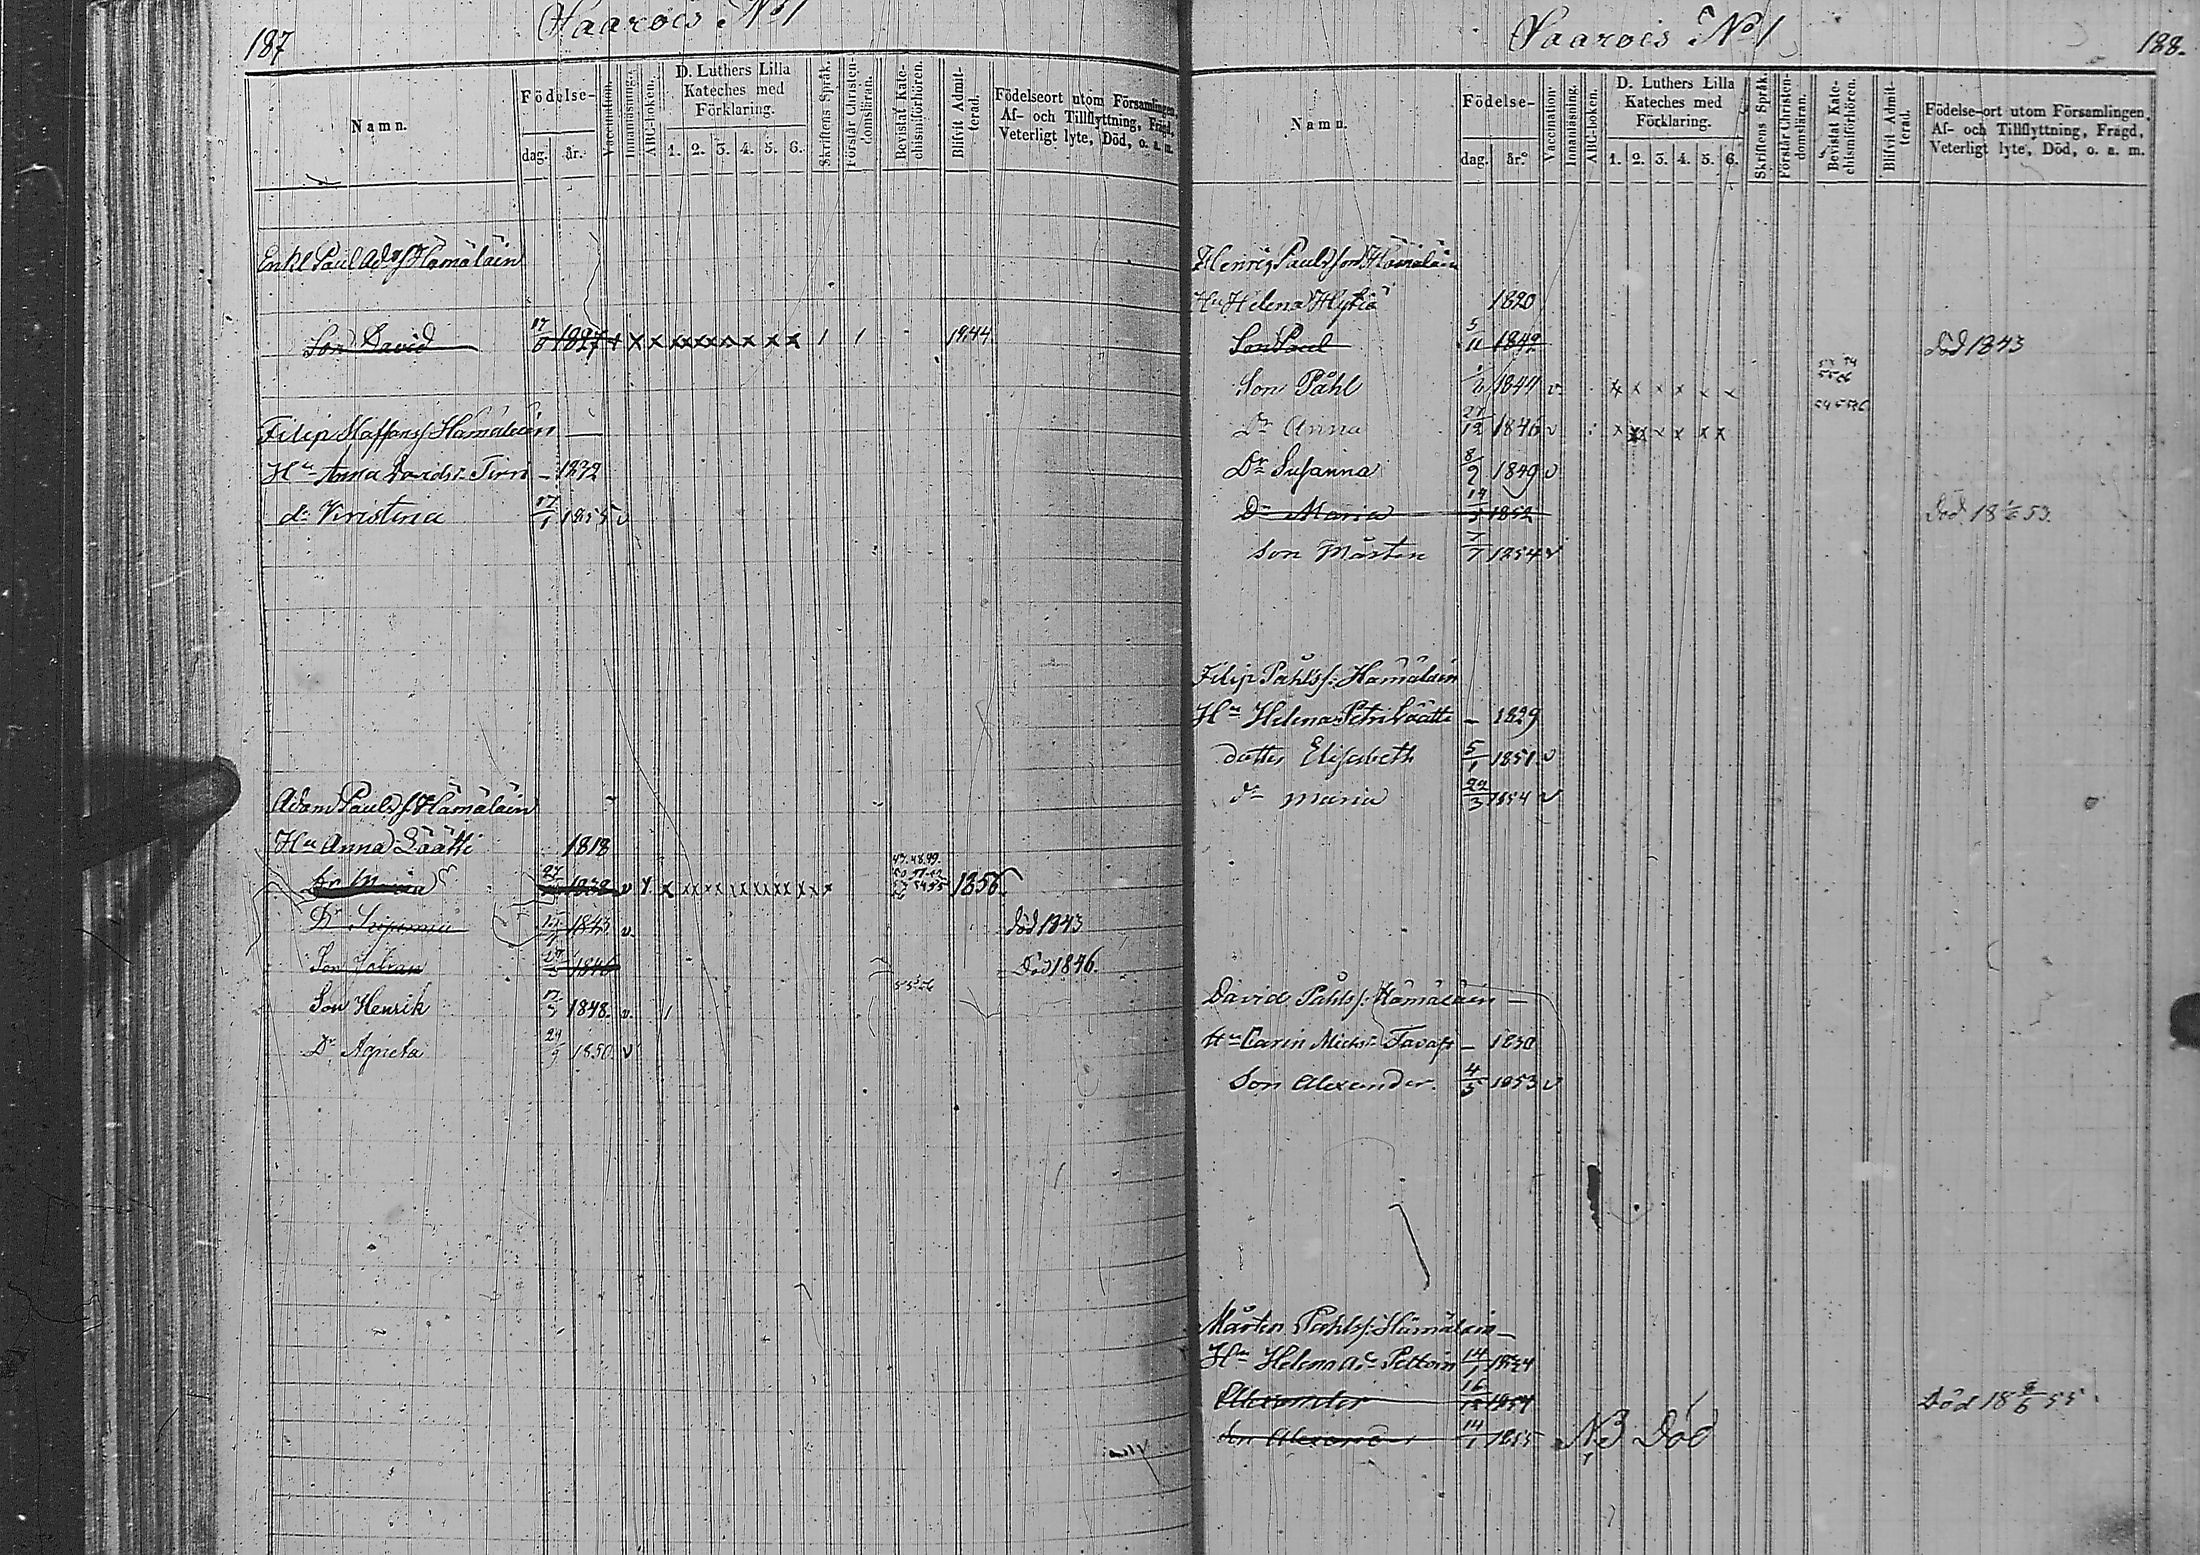 187
Vaarois No 1
Namn.
Födelse-
dag. år.
Vaccination.
Innanläsning.
ABC-boken.
D. Luthers Lilla
Kateches med
Förklaring.
1. 2. 3. 4. 5. 6.
Skriftens Språk.
Förstår Christen-
domsläran.
Bevistat Kate-
chismiförhören.
Blifvit Admit-
terad.
Födelseort utom Församlingen,
Af- och Tillflyttning, Frägd,
Veterligt lyte, Död, o. a. m.
Enkl Paul Ad. Hämäläin
Son David 17/6 1827 x x x x x x x x x 1 1 1844
Filip Staffans Hämäläin —
Hu Anna Davids: Tirri – 1832
dr Kristina 17/1 1855 v
Adam Pauls Hämäläin
Hu Anna Läätti 1818
47. 48. 49.
Dr Maria 27 1838 v x x x x x x x x 1856.
Dr 1843 v. död 1843
Son Johan 1846 Död 1846.
55 56
Son Henrik 17/3 1848. v. 1
Dr Agneta 29/9 1850. v
Vaarois No 1
188.
Namn.
Födelse-
dag. år.
Vaccination.
Innanläsning.
ABC-boken.
D. Luthers Lilla
Kateches med
Förklaring.
1. 2. 3. 4. 5. 6.
Skriftens Språk.
Förstår Christen-
domsläran.
Bevistat Kate-
chismiförhören.
Blifvit Admit-
terad.
Födelse-ort utom Församlingen,
Af- och Tillflyttning, Frägd,
Veterligt lyte, Död, o. a. m.
Henric Paulsson Hämäläin
Hu Helena Hyttiä 1820
Son Paul 5/11 1842 död 1843
Son Påhl 1844 v. x x x x x x
Dr Anna 27/12 1846 v x x x x x x
Dr Susanna 8/9 1849 v
Dr Maria 1852 död 18 53.
Son Mårten 7/7 1854 v
Filip Påhlss: Hämäläin
Hu Helena Petri Läätti – 1829
dotter Elisabeth 5/1 1851 v
dr Maria 22/3 1854 v
David Påhls: Hämäläin —
Hu Carin Michs: Tavast – 1830
Son Alexander. 4/5 1853 v
Mårten Påhlss: Hämäläin —
Hu Helena Ad: Pettoin 14/1 1834
Alexander 16/12 1854 Död 18 9/6 55.
Son Alexand 14/1 1855 NB Död